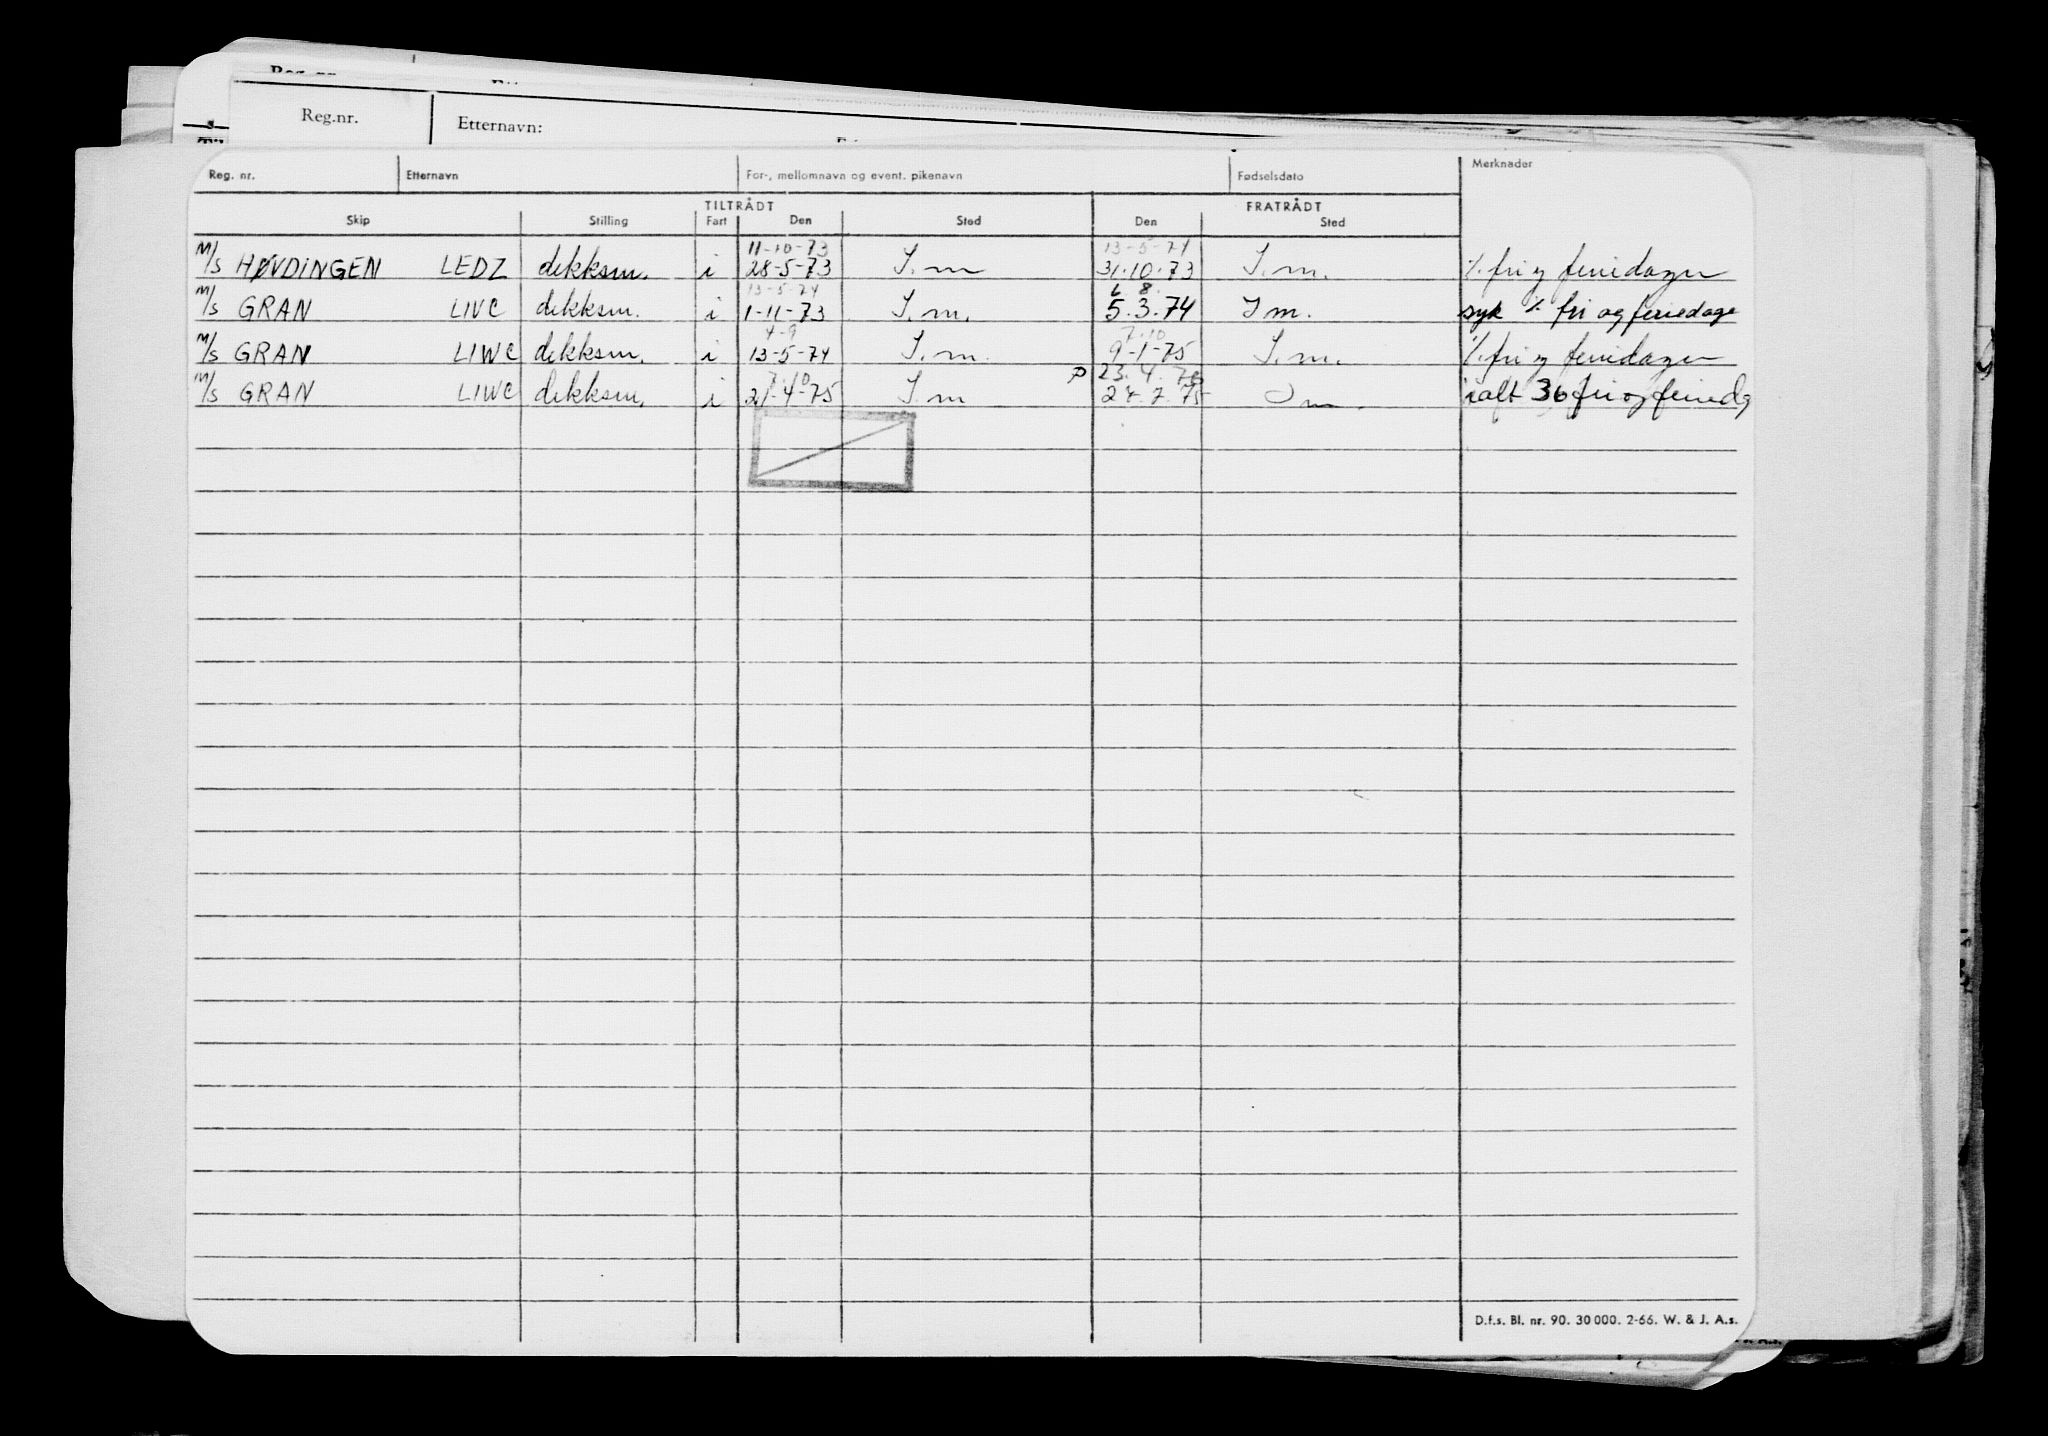 Reg.nr. Etternavn:
Reg. nr. Etternavn For-, mellomnavn og event. pikenavn Fødselsdato Merknader
TILTRÅDT FRATRÅDT
Skip Stilling Fart Den Sted Den Sted
11-10-73 13-5-74
M/S HØVDINGEN LEDZ dekksm. i 28-5-73 S.m 31.10.73 S.m. % fri og feriedager
13-5-74 6 8.
M/S GRAN LIVC dekksm. i 1-11-73 S.m. 5.3.74 S m. syk % fri og feriedage
4-9 7.10
M/S GRAN LIWC dekksm. i 13-5-74 S.m. 9-1-75 S.m. % fri og feriedager
7.10 P 23.4.76
M/S GRAN LIWC dekksm. i 21-4-75 S.m 24.7.75 S m. ialt 36 fri og feriedg
D.f.s. Bl. nr. 90. 30 000. 2-66. W. & J. A.s.